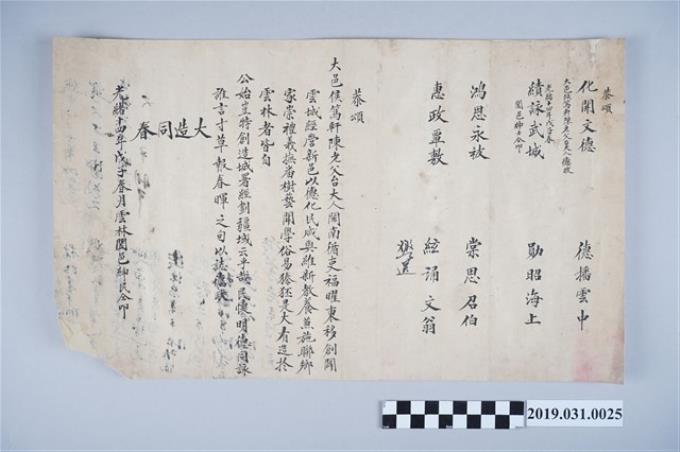 恭頌
化開文德
德播雲中
大邑侯篤軒陳老父台大人德政
績詠武城
勛昭海上
光緒十四年戊子春
闔邑紳民仝叩
鴻思永被
棠思召伯
惠政覃敷
絃誦文翁
恭頌
大邑侯篤軒陳老父台大人閩南循吏福曜東移創闢
雲城經營新邑以德化民咸與維新教養兼施聯鄉
家崇禮義撫番樹藝開學俗易
雲林者皆自
公始豈特創造城署經劃疆域云乎哉民懷明德同詠
雅言寸草報春暉之句以誌
大造同春
光緒十四年戊子春月雲林闔邑紳民仝叩
2019.031.0025